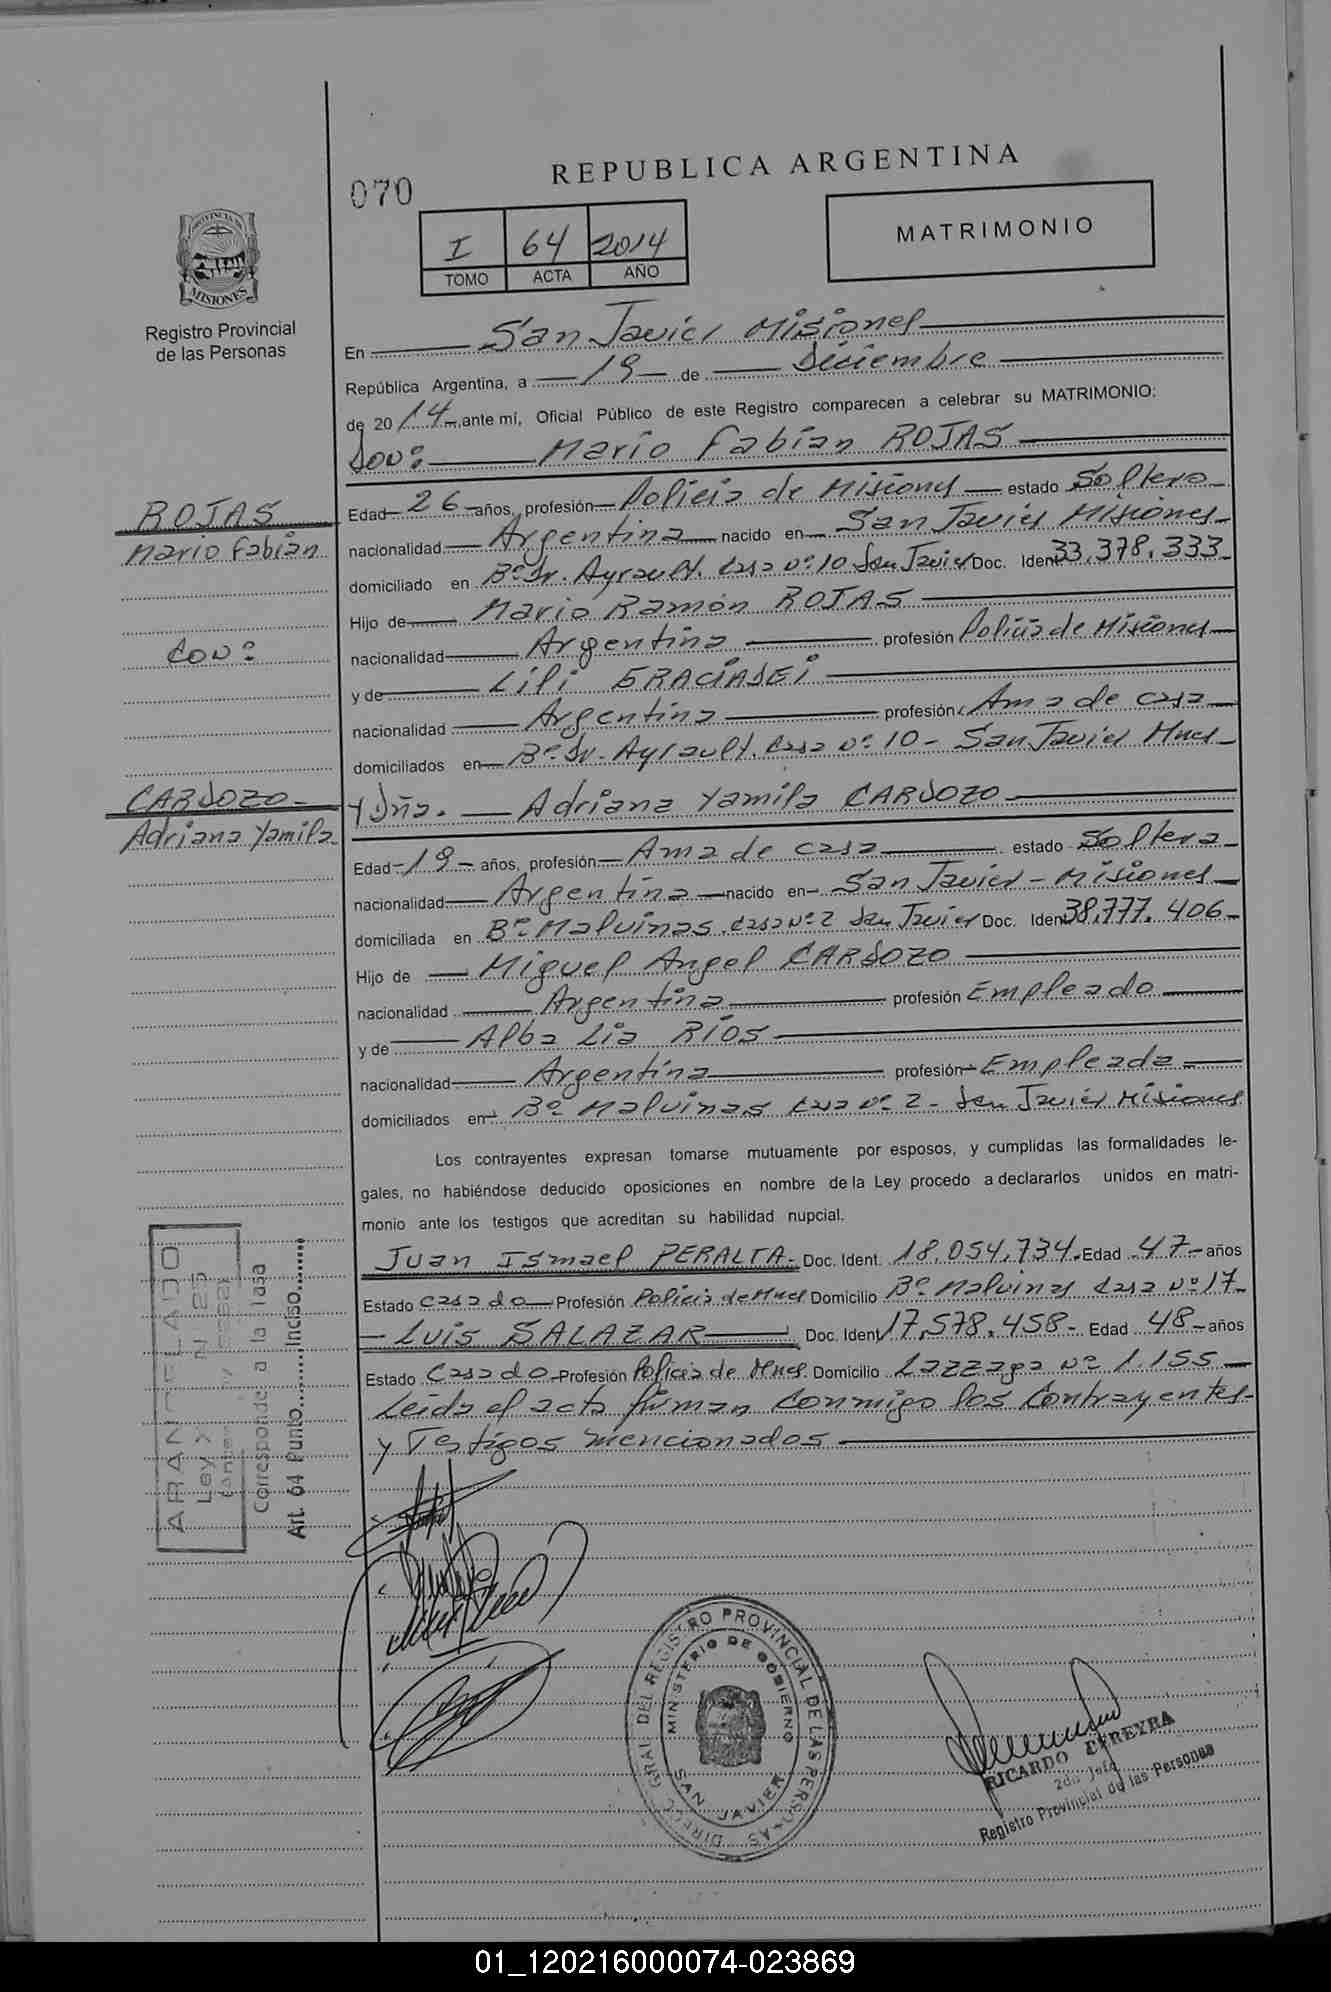 REPUBLICA ARGENTINA
070
MATRIMONIO
I 64 2014
TOMO ACTA AÑO
PROVINCIA DE
MISIONES
Registro Provincial
de las Personas
En San Javier Misiones
República Argentina, a 19 de Diciembre
de 2014 ante mí, Oficial Público de este Registro comparecen a celebrar su MATRIMONIO:
Don: Mario Fabian ROJAS
ROJAS
Mario Fabián
Edad 26 años, profesión Policia de Misiones estado Soltero
nacionalidad Argentina nacido en San Javier Misiones
domiciliado en Bº Dr. Ayrault. Casa Nº 10 San Javier Doc. Ident 33.378.333
Hijo de Mario Ramón ROJAS
Con:
nacionalidad Argentina profesión Policia de Misiones
y de Lili GRACIADEI
nacionalidad Argentina profesión Ama de casa
domiciliados en Bº Dr. Ayrault. Casa Nº 10 - San Javier Mnes
CARDOZO
Adriana Yamila
Y Dña. Adriana Yamila CARDOZO
Edad 19 años, profesión Ama de casa estado Soltera
nacionalidad Argentina nacido en San Javier - Misiones
domiciliada en Bº Malvinas. Casa Nº 2 San Javier Doc. Ident 38.777.406
Hijo de Miguel Angel CARDOZO
nacionalidad Argentina profesión Empleado
y de Alba Lia RIOS
nacionalidad Argentina profesión Empleada
domiciliados en Bº Malvinas Casa Nº 2 - San Javier Misiones
Los contrayentes expresan tomarse mutuamente por esposos, y cumplidas las formalidades le-
gales, no habiéndose deducido oposiciones en nombre de la Ley procedo a declararlos unidos en matri-
monio ante los testigos que acreditan su habilidad nupcial.
Juan Ismael PERALTA - Doc. Ident. 18.054.734 Edad 47 años
Estado casado Profesión Policia de Mnes Domicilio Bº Malvinas Casa Nº 17
Luis SALAZAR Doc. Ident 17.578.458 - Edad 48 años
Estado Casado Profesión Policia de Mnes. Domicilio Nº 1.155
Leida el acta firman conmigo los Contrayentes
y Testigos mencionados
ARANCELADO
Ley X N 25
Corresponde a la Tasa
Art. 64 Punto Inciso
DIRECC. GRAL. DEL REGISTRO PROVINCIAL DE LAS PERSONAS
MINISTERIO DE GOBIERNO
SAN JAVIER
RICARDO PEREYRA
2do Jefe
Registro Provincial de las Personas
01_120216000074-023869